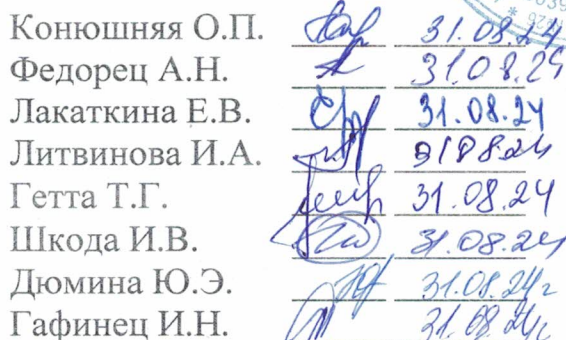 Конюшняя О.П. 31.08.24
Федорец А.Н. 31.08.24
Лакаткина Е.В. 31.08.24
Литвинова И.А. 31.08.24
Гетта Т.Г. 31.08.24
Шкода И.В. 31.08.24
Дюмина Ю.Э. 31.08.24г
Гафинец И.Н. 31.08.24г